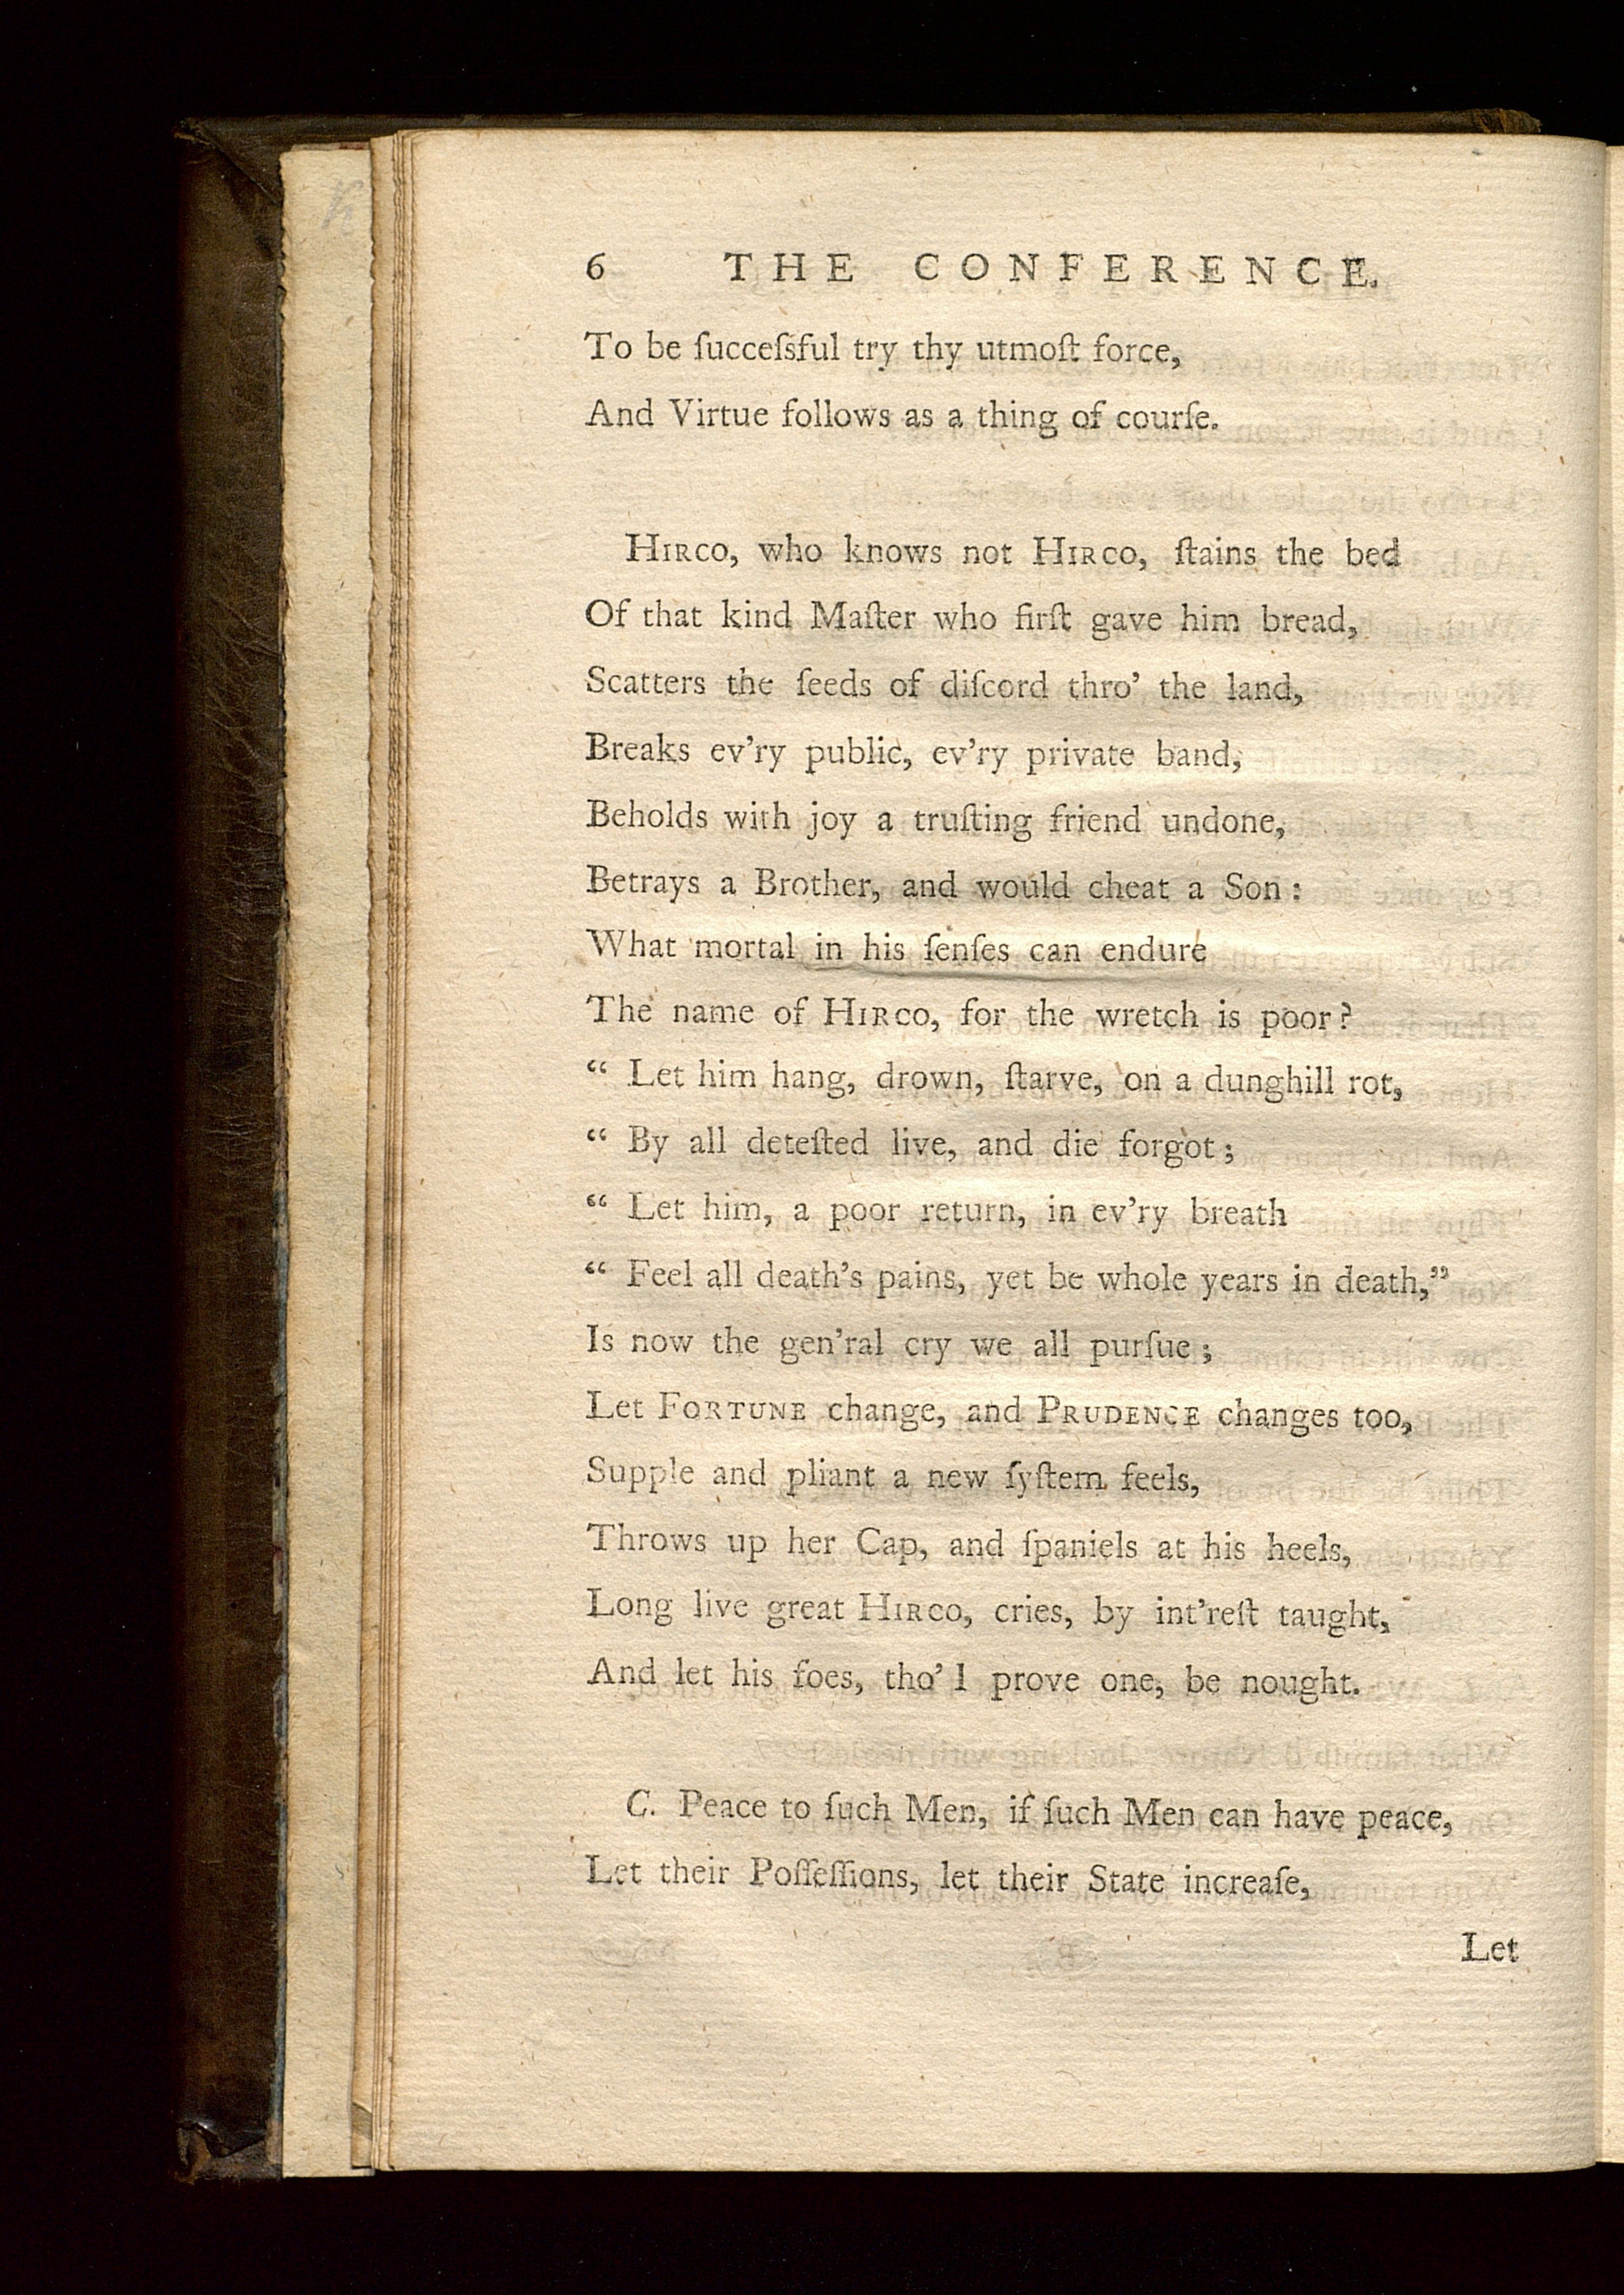 6 THE CONFERENCE.
To be ſucceſsful try thy utmoſt force,
And Virtue follows as a thing of courſe.
HIRCO, who knows not HIRCO, ſtains the bed
Of that kind Maſter who firſt gave him bread,
Scatters the ſeeds of diſcord thro’ the land,
Breaks ev’ry public, ev’ry private band,
Beholds with joy a truſting friend undone,
Betrays a Brother, and would cheat a Son:
What mortal in his ſenſes can endure
The name of HIRCO, for the wretch is poor?
“ Let him hang, drown, ſtarve, on a dunghill rot,
“ By all deteſted live, and die forgot;
“ Let him, a poor return, in ev’ry breath
“ Feel all death’s pains, yet be whole years in death,”
Is now the gen’ral cry we all purſue;
Let FORTUNE change, and PRUDENCE changes too,
Supple and pliant a new ſyſtem feels,
Throws up her Cap, and ſpaniels at his heels,
Long live great HIRCO, cries, by int’reſt taught,
And let his foes, tho’ I prove one, be nought.
C. Peace to ſuch Men, if ſuch Men can have peace,
Let their Poſſeſſions, let their State increaſe,
Let